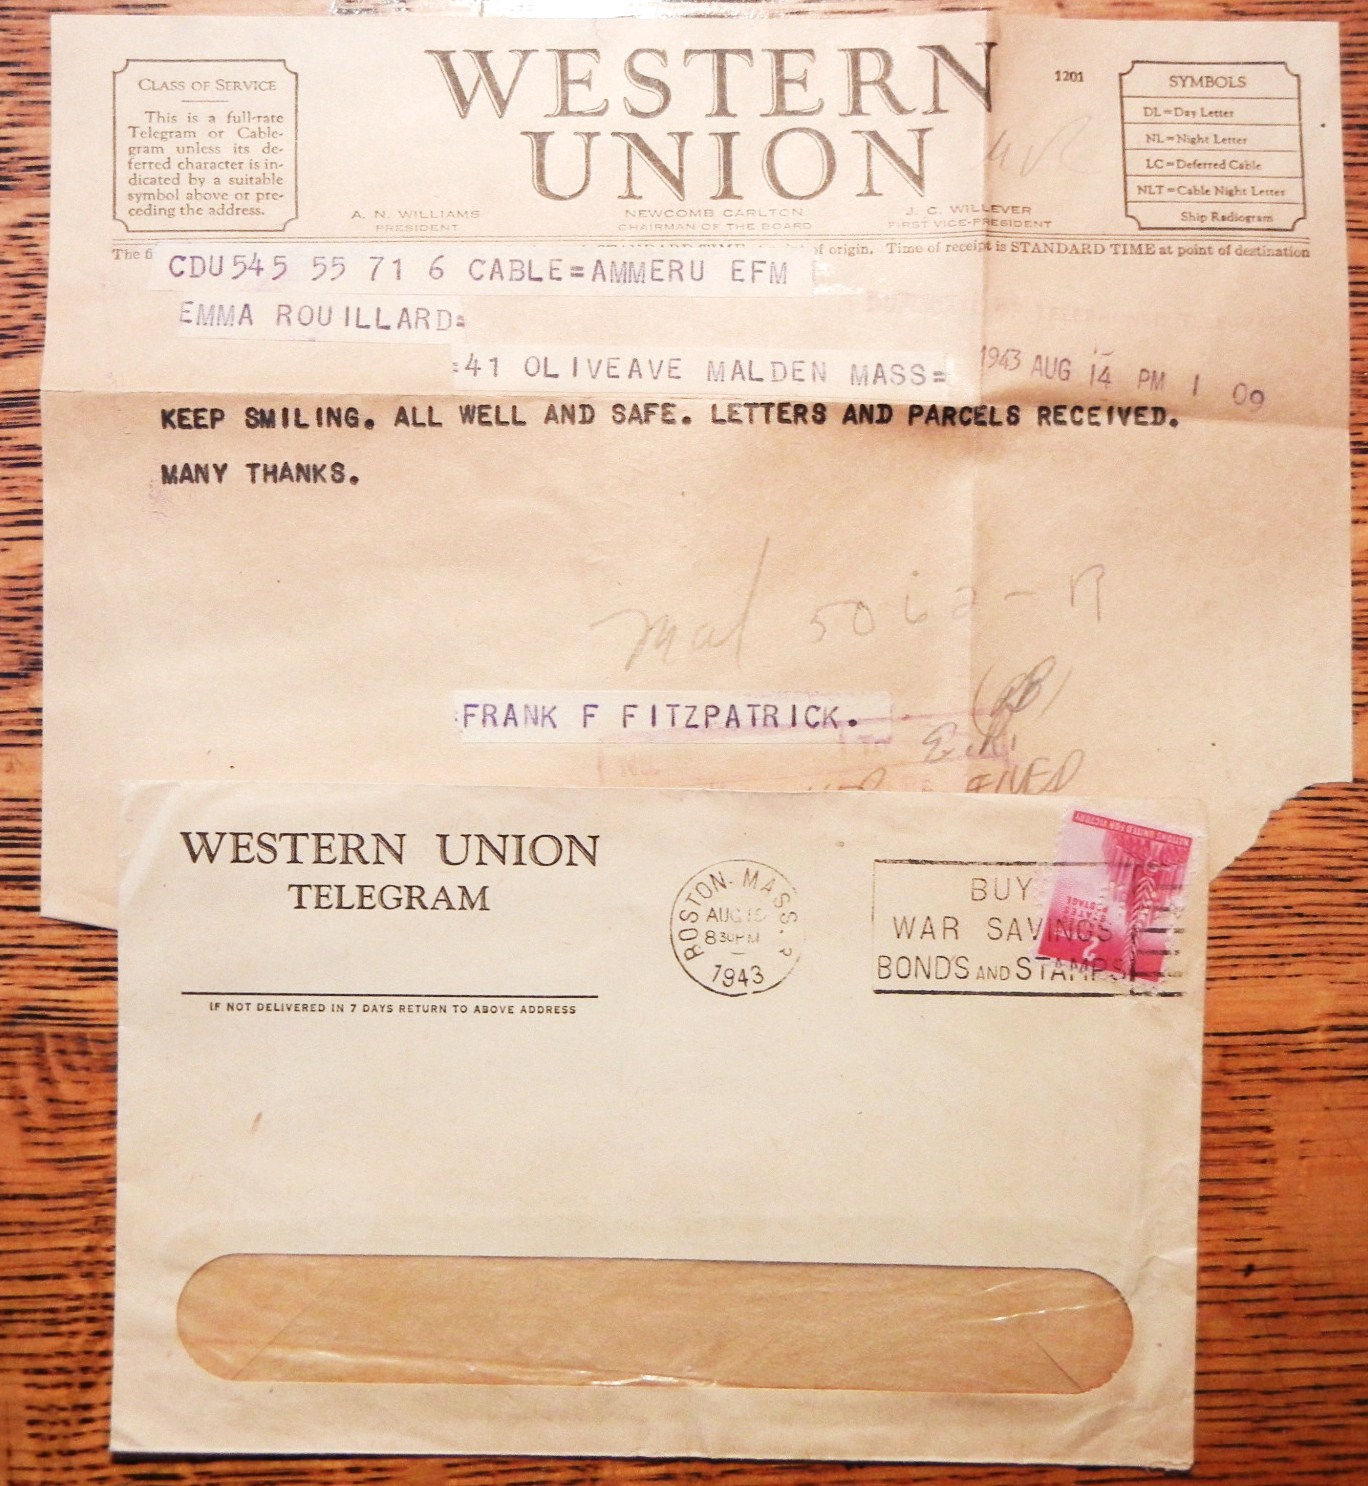 CLASS OF SERVICE
This is a full-rate
Telegram or Cable-
gram unless its de-
ferred character is in-
dicated by a suitable
symbol above or pre-
ceding the address.
WESTERN
UNION
A. N. WILLIAMS
PRESIDENT
NEWCOMB CARLTON
CHAIRMAN OF THE BOARD
J. C. WILLEVER
FIRST VICE-PRESIDENT
1201
SYMBOLS
DL=Day Letter
NL=Night Letter
LC=Deferred Cable
NLT=Cable Night Letter
Ship Radiogram
The STANDARD TIME of origin. Time of receipt is STANDARD TIME at point of destination
CDU545 55 71 6 CABLE=AMMERU EFM
EMMA ROUILLARD=
:41 OLIVEAVE MALDEN MASS=
1943 AUG 14 PM 1 09
KEEP SMILING. ALL WELL AND SAFE. LETTERS AND PARCELS RECEIVED.
MANY THANKS.
Mal 5062-R
:FRANK F FITZPATRICK.
WESTERN UNION
TELEGRAM
IF NOT DELIVERED IN 7 DAYS RETURN TO ABOVE ADDRESS
BOSTON-MASS.
AUG 15
830PM
1943
BUY
WAR SAVINGS
BONDS AND STAMPS
NATIONS UNITED FOR VICTORY
STATES
POSTAGE
2